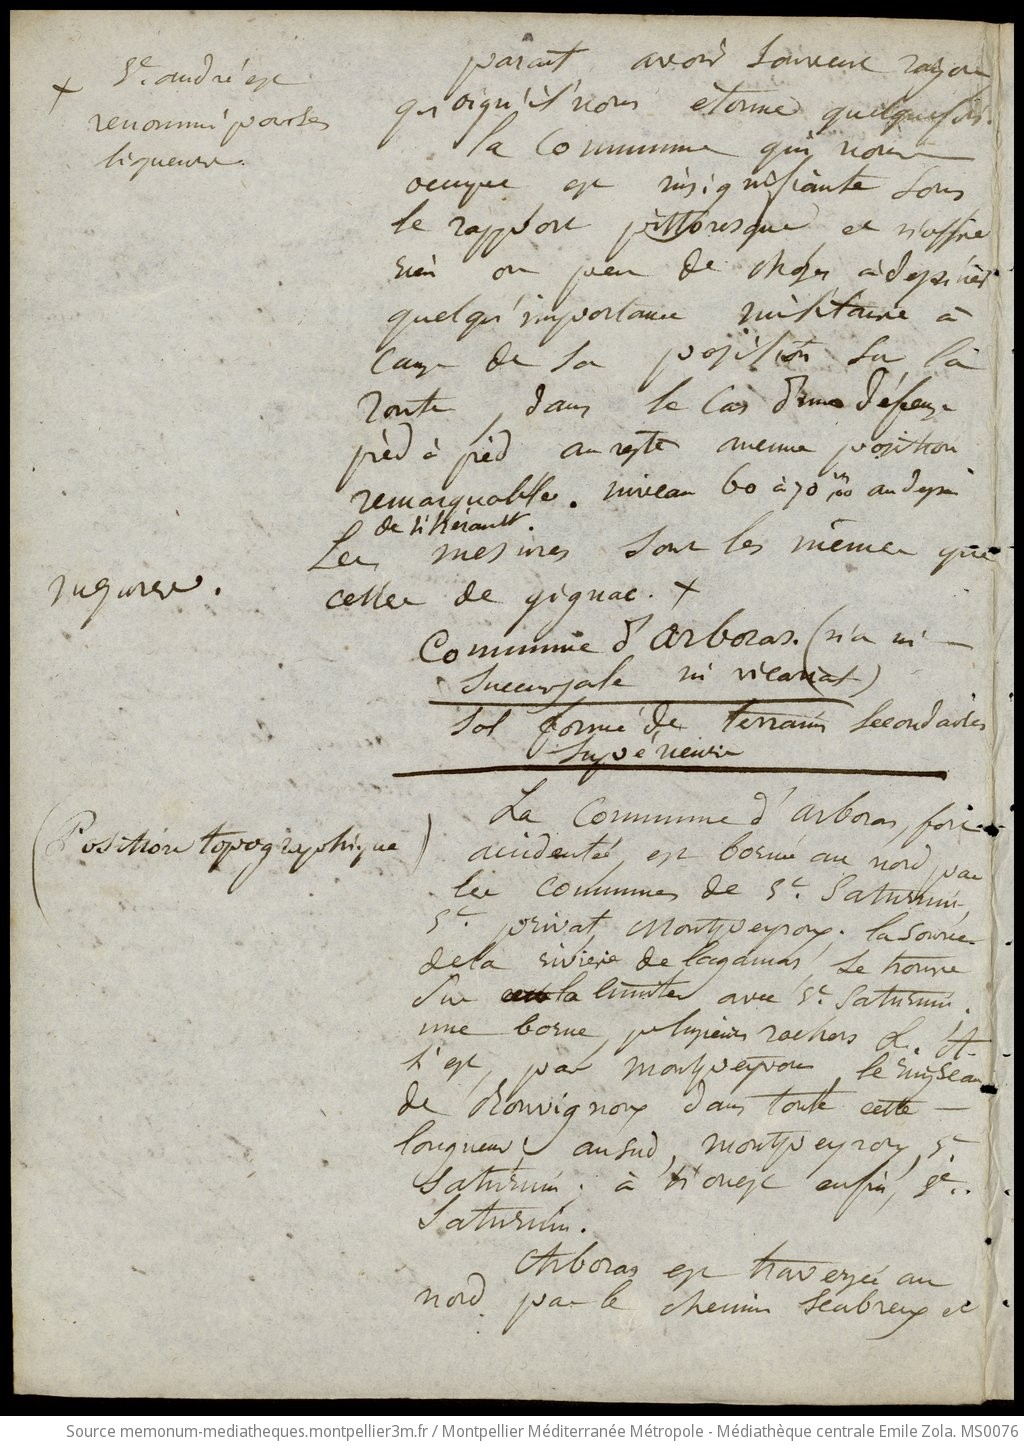 + St. andré est
renommé pour ses
liqueurs.
parait avoir souvent raison
quoiqu'il nous étonne quelquefois.
la Commune qui nous
occupe est insignifiante sous
le rapport pittoresque et n'offre
rien ou peu de choses à dessiner
quelqu'importance militaire à
cause de sa position sur la
route, dans le cas d'une défense
pied à pied au reste aucune position
remarquable. niveau 60 à 70 m au dessus
de l'hérault.
mesures.
Les mesures sont les mêmes que
celles de gignac. +
Commune d'Arboras. (n'a ni
succursale ni vicariat)
Sol formé de terrains secondaires
supérieurs
(Position topographique)
La Commune d'arboras, fort
accidentée, est bornée au nord par
les communes de St. Saturnin,
St. privat, Montpeyroux. la source
de la riviere de lagamas se trouve
sur la limite avec St. Saturnin.
une borne, plusieurs rochers &. A
l'est, par montpeyroux le ruisseau
de Rouvignoux dans toute cette
longueur; au sud, montpeyroux, St
Saturnin; à l'ouest enfin, St.
Saturnin.
Arboras est traversée au
nord par le chemin scabreux et
Source memonum-mediatheques.montpellier3m.fr / Montpellier Méditerranée Métropole - Médiathèque centrale Emile Zola. MS0076